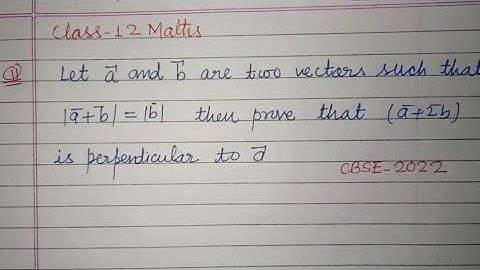 Class-12 Maths
Q Let a⃗ and b⃗ are two vectors such that
|a̅+b̅|=|b̅| then prove that (a̅+2̅b)
is perpendicular to a⃗
CBSE-2022